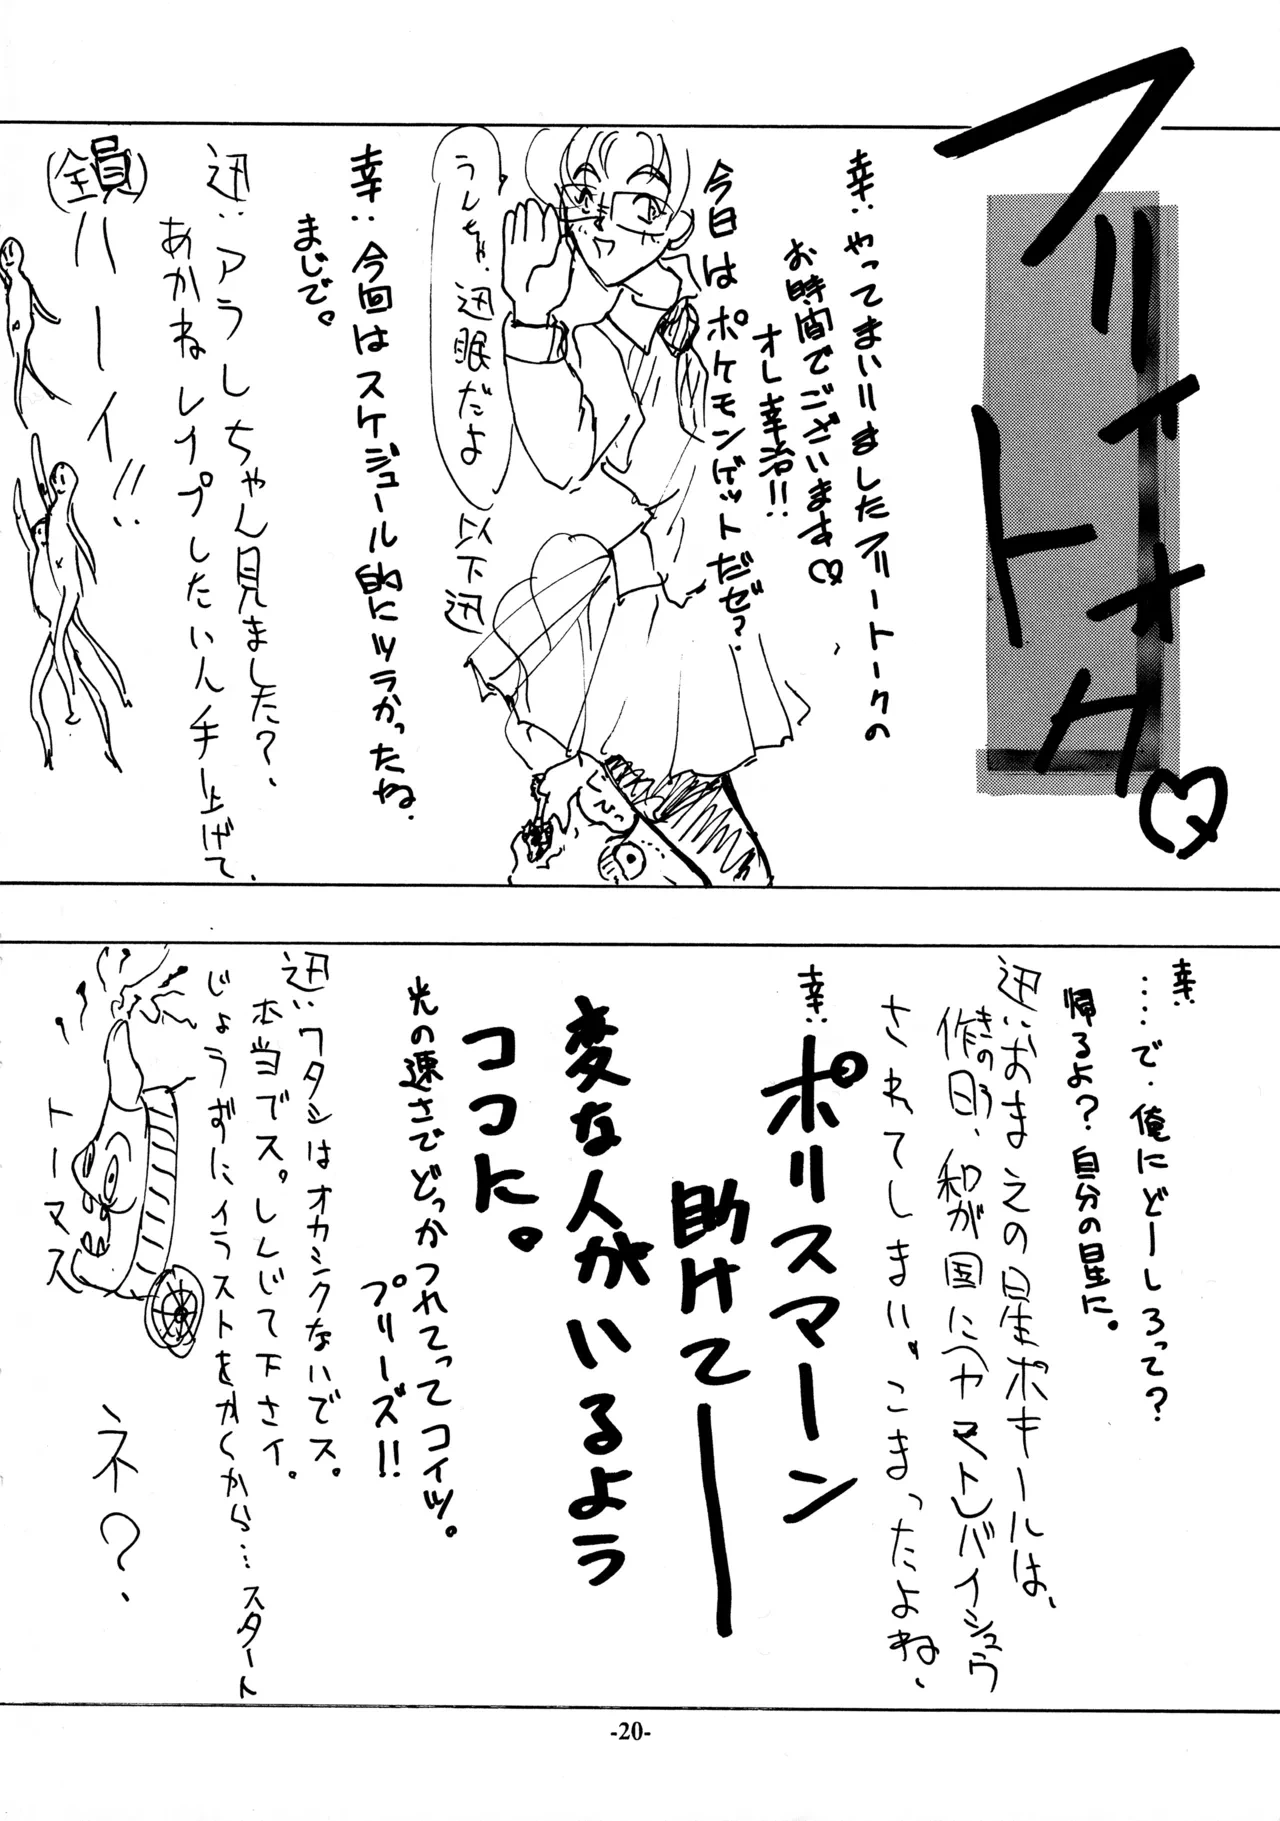 フリィ
トォク♡
幸:やってまいりましたフリートークの
お時間でございます♡
オレ幸治!!
今日はポケモンゲットだぜ?
うんちゃ、迅眠だよ
以下迅
幸:今回はスケジュール的にツラかったね、
まじで。
迅:アラしちゃん見ました?、
あかねレイプしたい人手上げて、
(全員)ハーイ!!
幸:……で、俺にどーしろって?
帰るよ?自分の星に。
迅:おまえの星ポキールは、
作日、和が国に(ヤマト)バイシュウ
きのう
されてしまい。こまったよね、
幸:ポリスマーン
助けてー
変な人がいるよう
ココに。
光の速さでどっかつれてってコイツ。
プリーズ!!
迅:ワタシはオカシクないでス。
本当でス。しんじて下さイ。
じょうずにイラストをかくから…スタート
トーマス
ネ?、
-20-